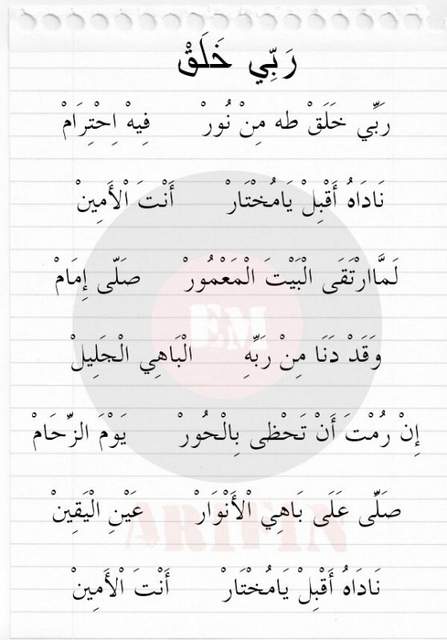 رَبِّي خَلَقْ
رَبِّي خَلَقْ طه مِنْ نُورْ فِيهْ اِحْتِرَامْ
نَادَاهُ أَقْبِلْ يَامُخْتَارْ أَنْتَ الْأَمِينْ
لَمَّاارْتَقَى الْبَيْتَ الْمَعْمُورْ صَلَّى إِمَامْ
وَقَدْ دَنَا مِنْ رَبِّهِ الْبَاهِي الْجَلِيلْ
إِنْ رُمْتَ أَنْ تَحْظى بِالْحُورْ يَوْمَ الزِّحَامْ
صَلِّى عَلَى بَاهِي الْأَنْوَارْ عَيْنِ الْيَقِينْ
نَادَاهُ أَقْبِلْ يَامُخْتَارْ أَنْتَ الْأَمِينْ
EM
ARIFIN